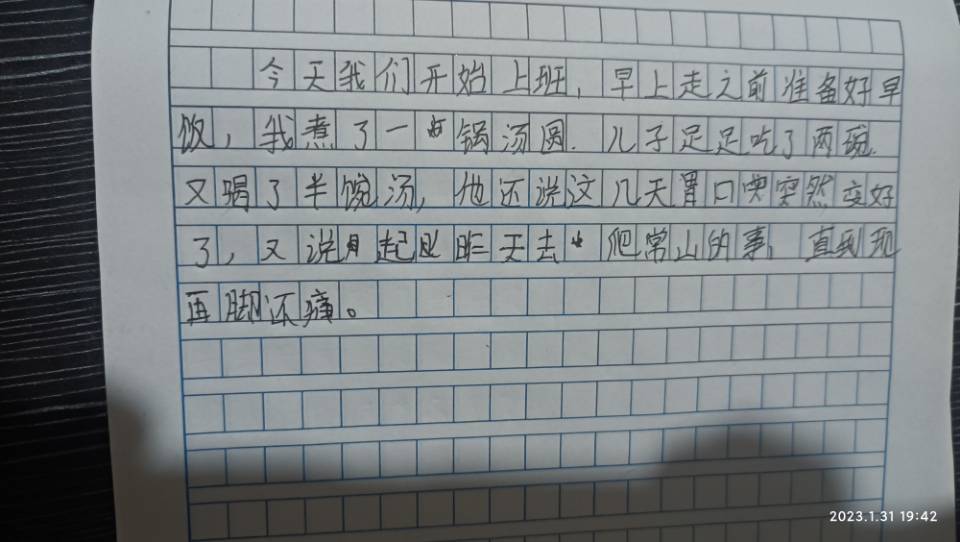 今天我们开始上班，早上走之前准备好早
饭，我煮了一锅汤圆.儿子足足吃了两碗.
又喝了半碗汤，他还说这几天胃口突然变好
了，又说起昨天去爬常山的事，直到现
再脚还痛。
2023.1.31 19:42